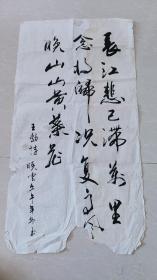 長江悲已滯萬里
念將歸况復高風
晚山山黄葉飛
王勃詩